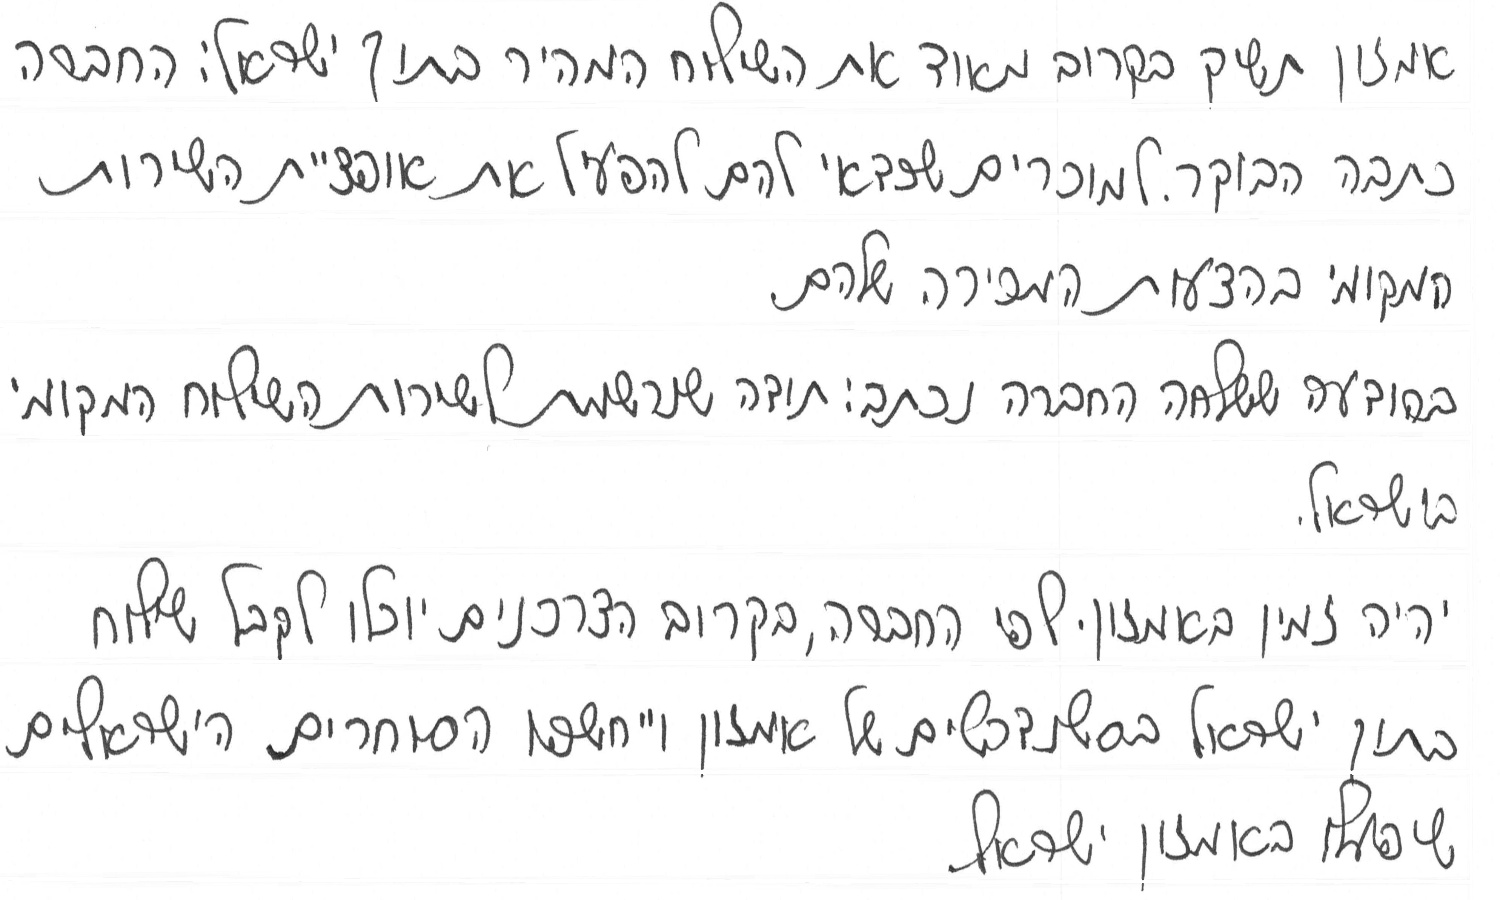 אמזון תשיק בקרוב מאוד את השילוח המהיר בתוך ישראל: החברה
כתבה הבוקר. למוכרים שכדאי להם להפעיל את אופציית השירות
המקומי בהצעות המכירה שלהם.
בהודעה ששלחה החברה נכתב: תודה שנרשמת לשירות השילוח המקומי
בישראל.
יהיה זמין באמזון. לפי החברה, בקרוב הצרכנים יוכלו לקבל שילוח
בתוך ישראל של אמזון וייחשפו הסוחרים הישראלים
שיפעלו באמזון ישראל